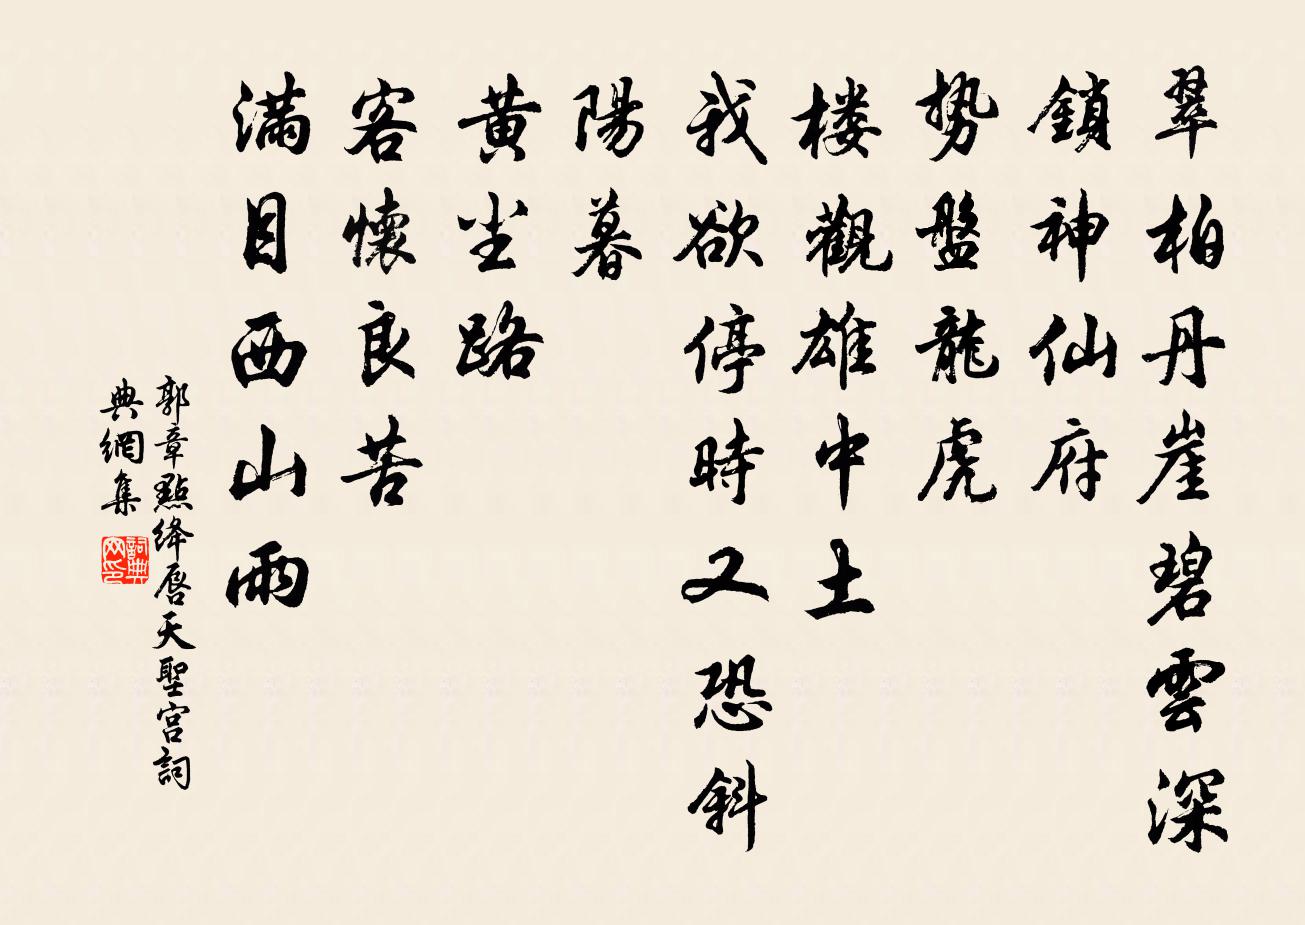 翠柏丹崖碧雲深
鎖神仙府
势盤龍虎
楼觀雄中土
我欲停時又恐斜
陽暮
黄尘路
客懷良苦
滿目西山雨
郭章點绛唇天聖宫詞
典網集
詞典
网印